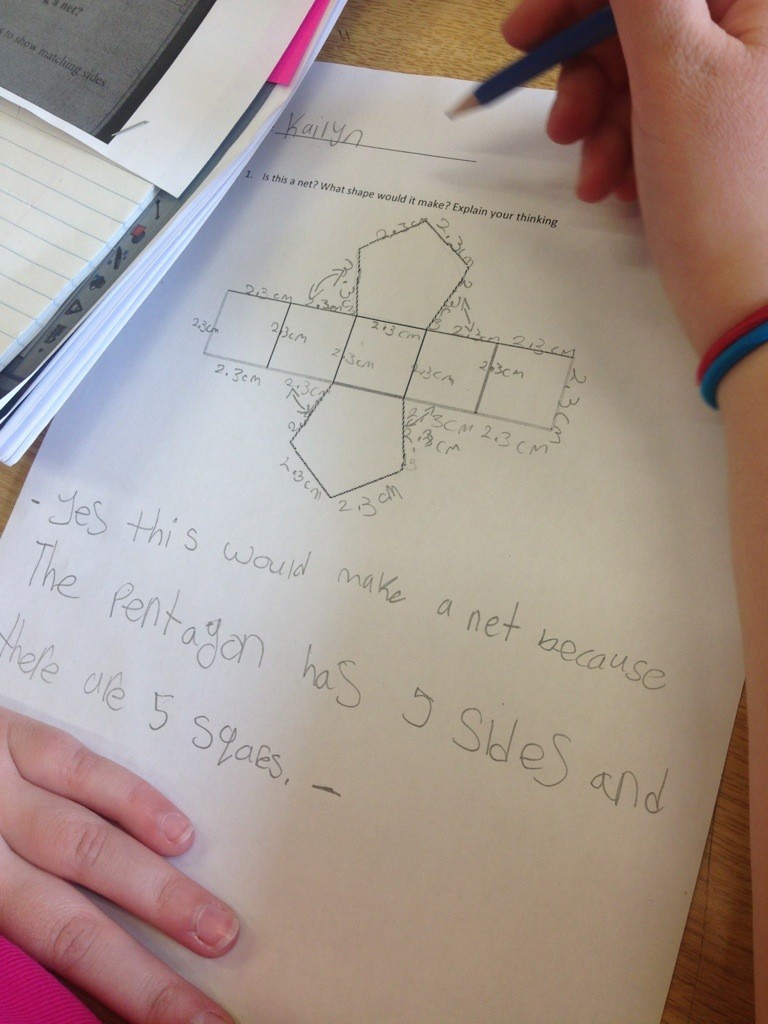 a net?
s to show matching sides
Kailyn
1. Is this a net? What shape would it make? Explain your thinking
2.3cm 2.3cm
2.3cm 2.3cm
2.3cm 2.3cm
2.3cm 2.3cm 2.3cm 2.3cm 2.3cm 2.3cm
2.3cm 2.3cm
2.3cm 2.3cm
2.3cm
2.3cm 2.3cm
- yes this would make a net because
The Pentagon has 5 sides and
there are 5 sqaes. -